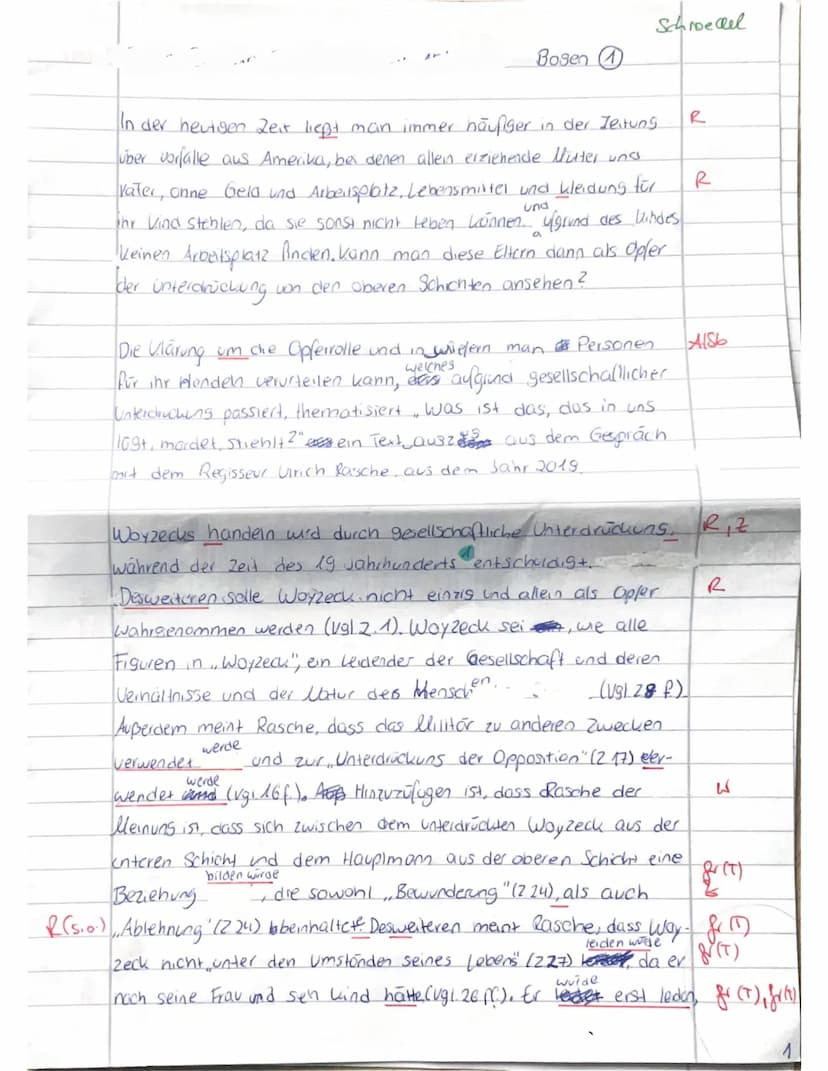 Schroedel
Bogen 1
In der heutigen Zeit ließt man immer häufiger in der Zeitung R
über vorfälle aus Amerika, bei denen allein erziehende Mütter und
Väter, ohne Geld und Arbeitsplatz, Lebensmittel und kleidung für R
ihr Kind stehlen, da sie sonst nicht leben können und aufgrund des Kindes
keinen Arbeitsplatz finden. Kann man diese Eltern dann als Opfer
der Unterdrückung von den oberen Schichten ansehen?
Die Klärung um die Opferrolle und in wiefern man Personen A/Sb
für ihr Handeln verurteilen kann, welches aufgrund gesellschaftlicher
Unterdrückung passiert, thematisiert „Was ist das, das in uns
lügt, mordet, stiehlt?" ein Text aus dem Gespräch
mit dem Regisseur Ulrich Rasche aus dem Jahr 2019.
Woyzecks handeln wird durch gesellschaftliche Unterdrückung, R, Z
während der Zeit des 19 Jahrhunderts 1 entschuldigt.
Desweiteren solle Woyzeck nicht einzig und allein als Opfer R
wahrgenommen werden (vgl. Z. 1). Woyzeck sei, wie alle
Figuren in „Woyzeck", ein leidender der Gesellschaft und deren
Verhältnisse und der Natur des Menschen. (vgl. Z8 f.)
Außerdem meint Rasche, dass das Militär zu anderen Zwecken
verwendet werde und zur „Unterdrückung der Opposition" (Z 17) ver-
wendet werde (vgl. 16 f.). Hinzuzufügen ist, dass Rasche der W
Meinung ist, dass sich zwischen dem unterdrückten Woyzeck aus der
unteren Schicht und dem Hauptmann aus der oberen Schicht eine gr (T)
Beziehung bilden würde, die sowohl „Bewunderung" (Z 24), als auch Z
R (s.o.) „Ablehnung" (Z 24) beinhaltet. Desweiteren meint Rasche, dass Woy- gr (T)
zeck nicht „unter den Umständen seines Lebens" (Z 27) leiden würde, da er gr (T)
noch seine Frau und sein Kind hätte (vgl. 26 ff.). Er würde erst leiden, gr (T), gr (T)
1